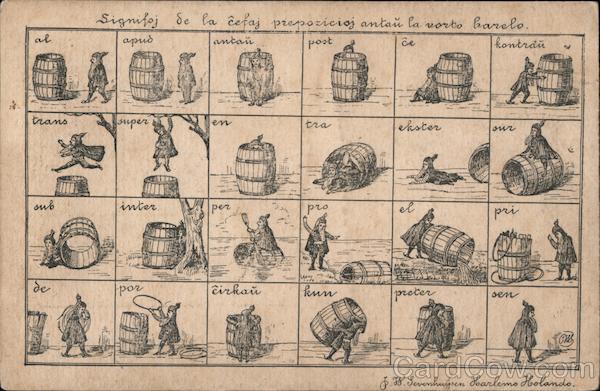 Signifoj de la ĉefaj prepozicioj antaŭ la vorto barelo.
al apud antaŭ post ĉe kontraŭ
trans super en tra ekster sur
sub inter per pro el pri
de por ĉirkaŭ kun preter sen
J. W. Sevenhuijsen Harlemo Holando.
CardCow.com